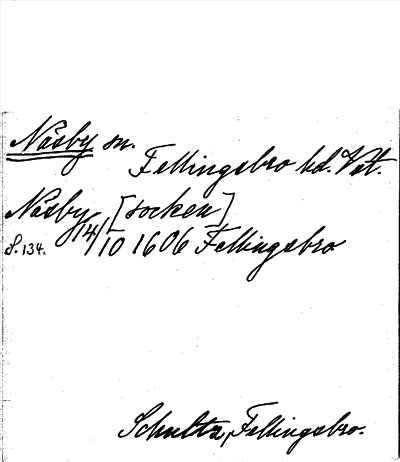 Näsby sn.
Fellingsbro hd. Vstm.
Näsby [socken]
S. 134. 14/10 1606 Fellingsbro
Schultz, Fellingsbro.